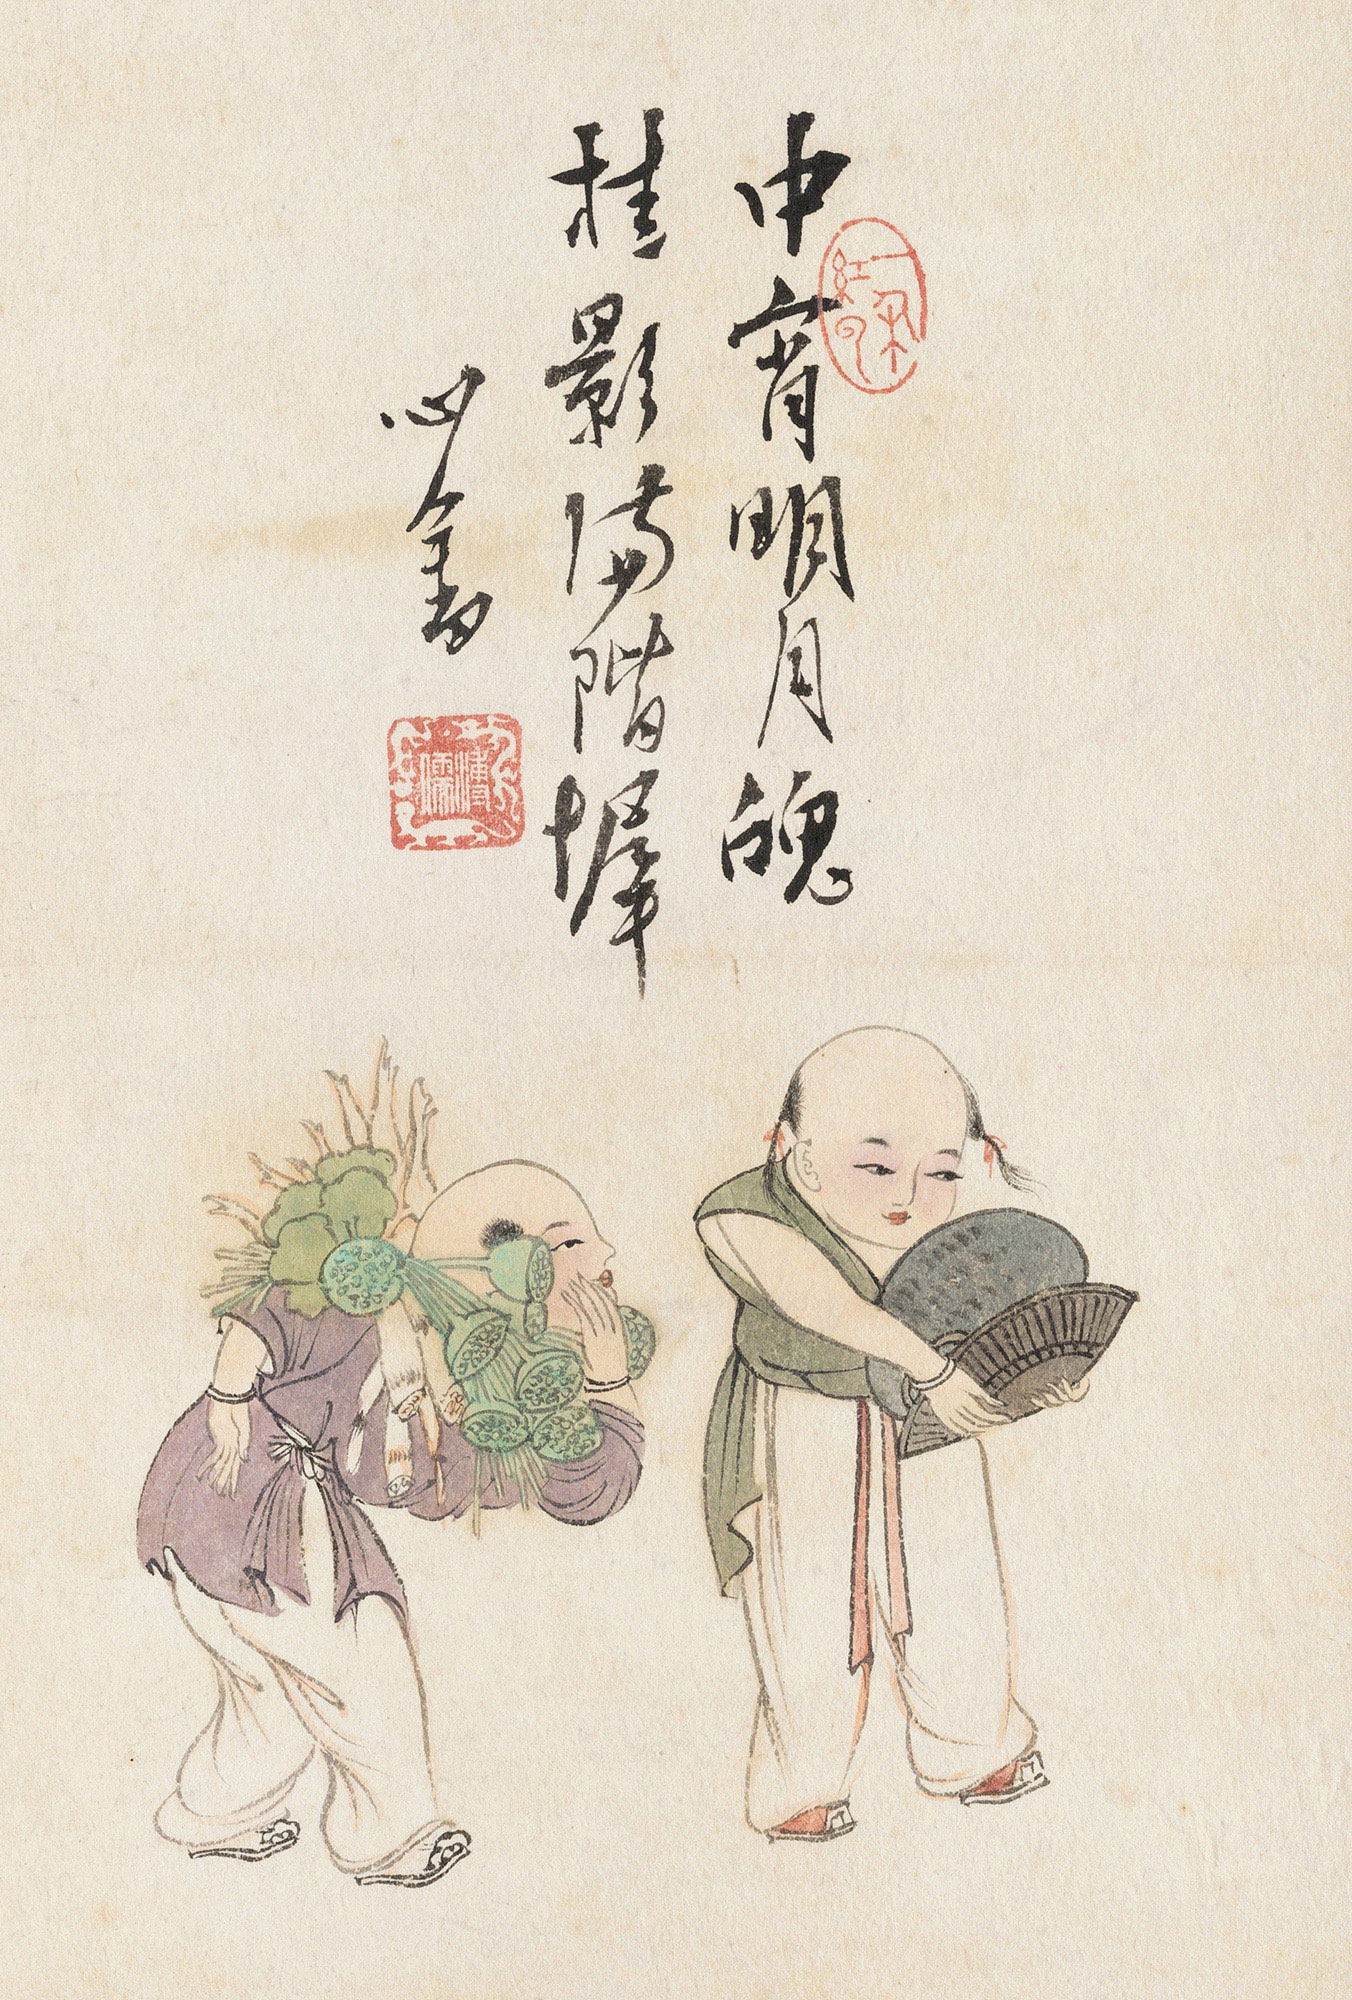 中宵明月魄
桂影滿階墀
心畬
一朵紅雲
溥儒